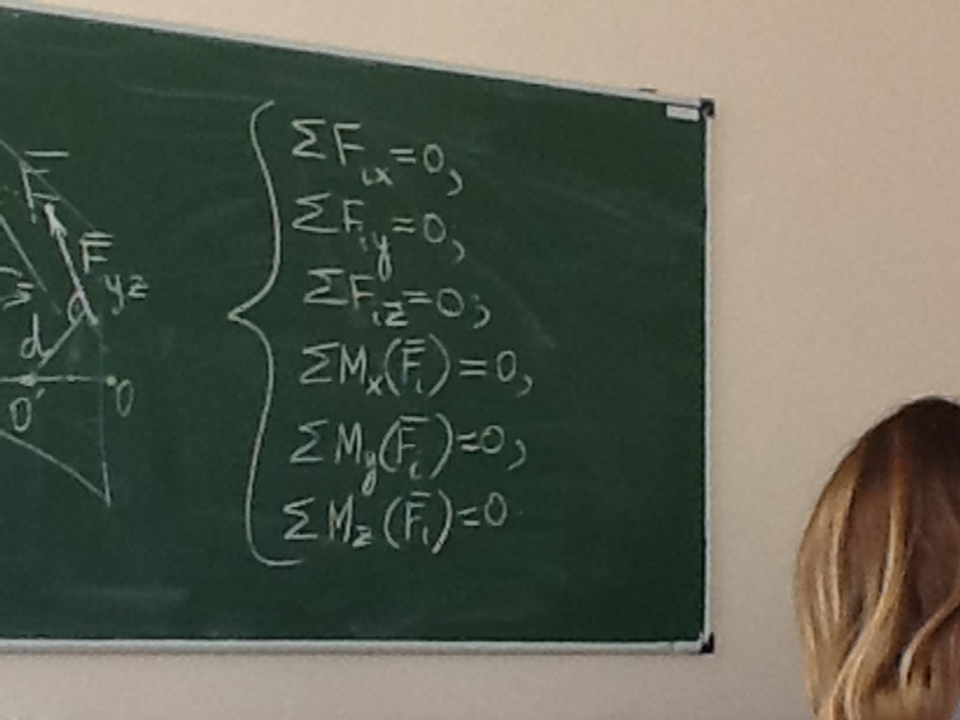 F̅
F̅yz
d
O'
O
ΣFix=0,
ΣFiy=0,
ΣFiz=0;
ΣMx(F̅i)=0,
ΣMy(F̅i)=0,
ΣMz(F̅i)=0